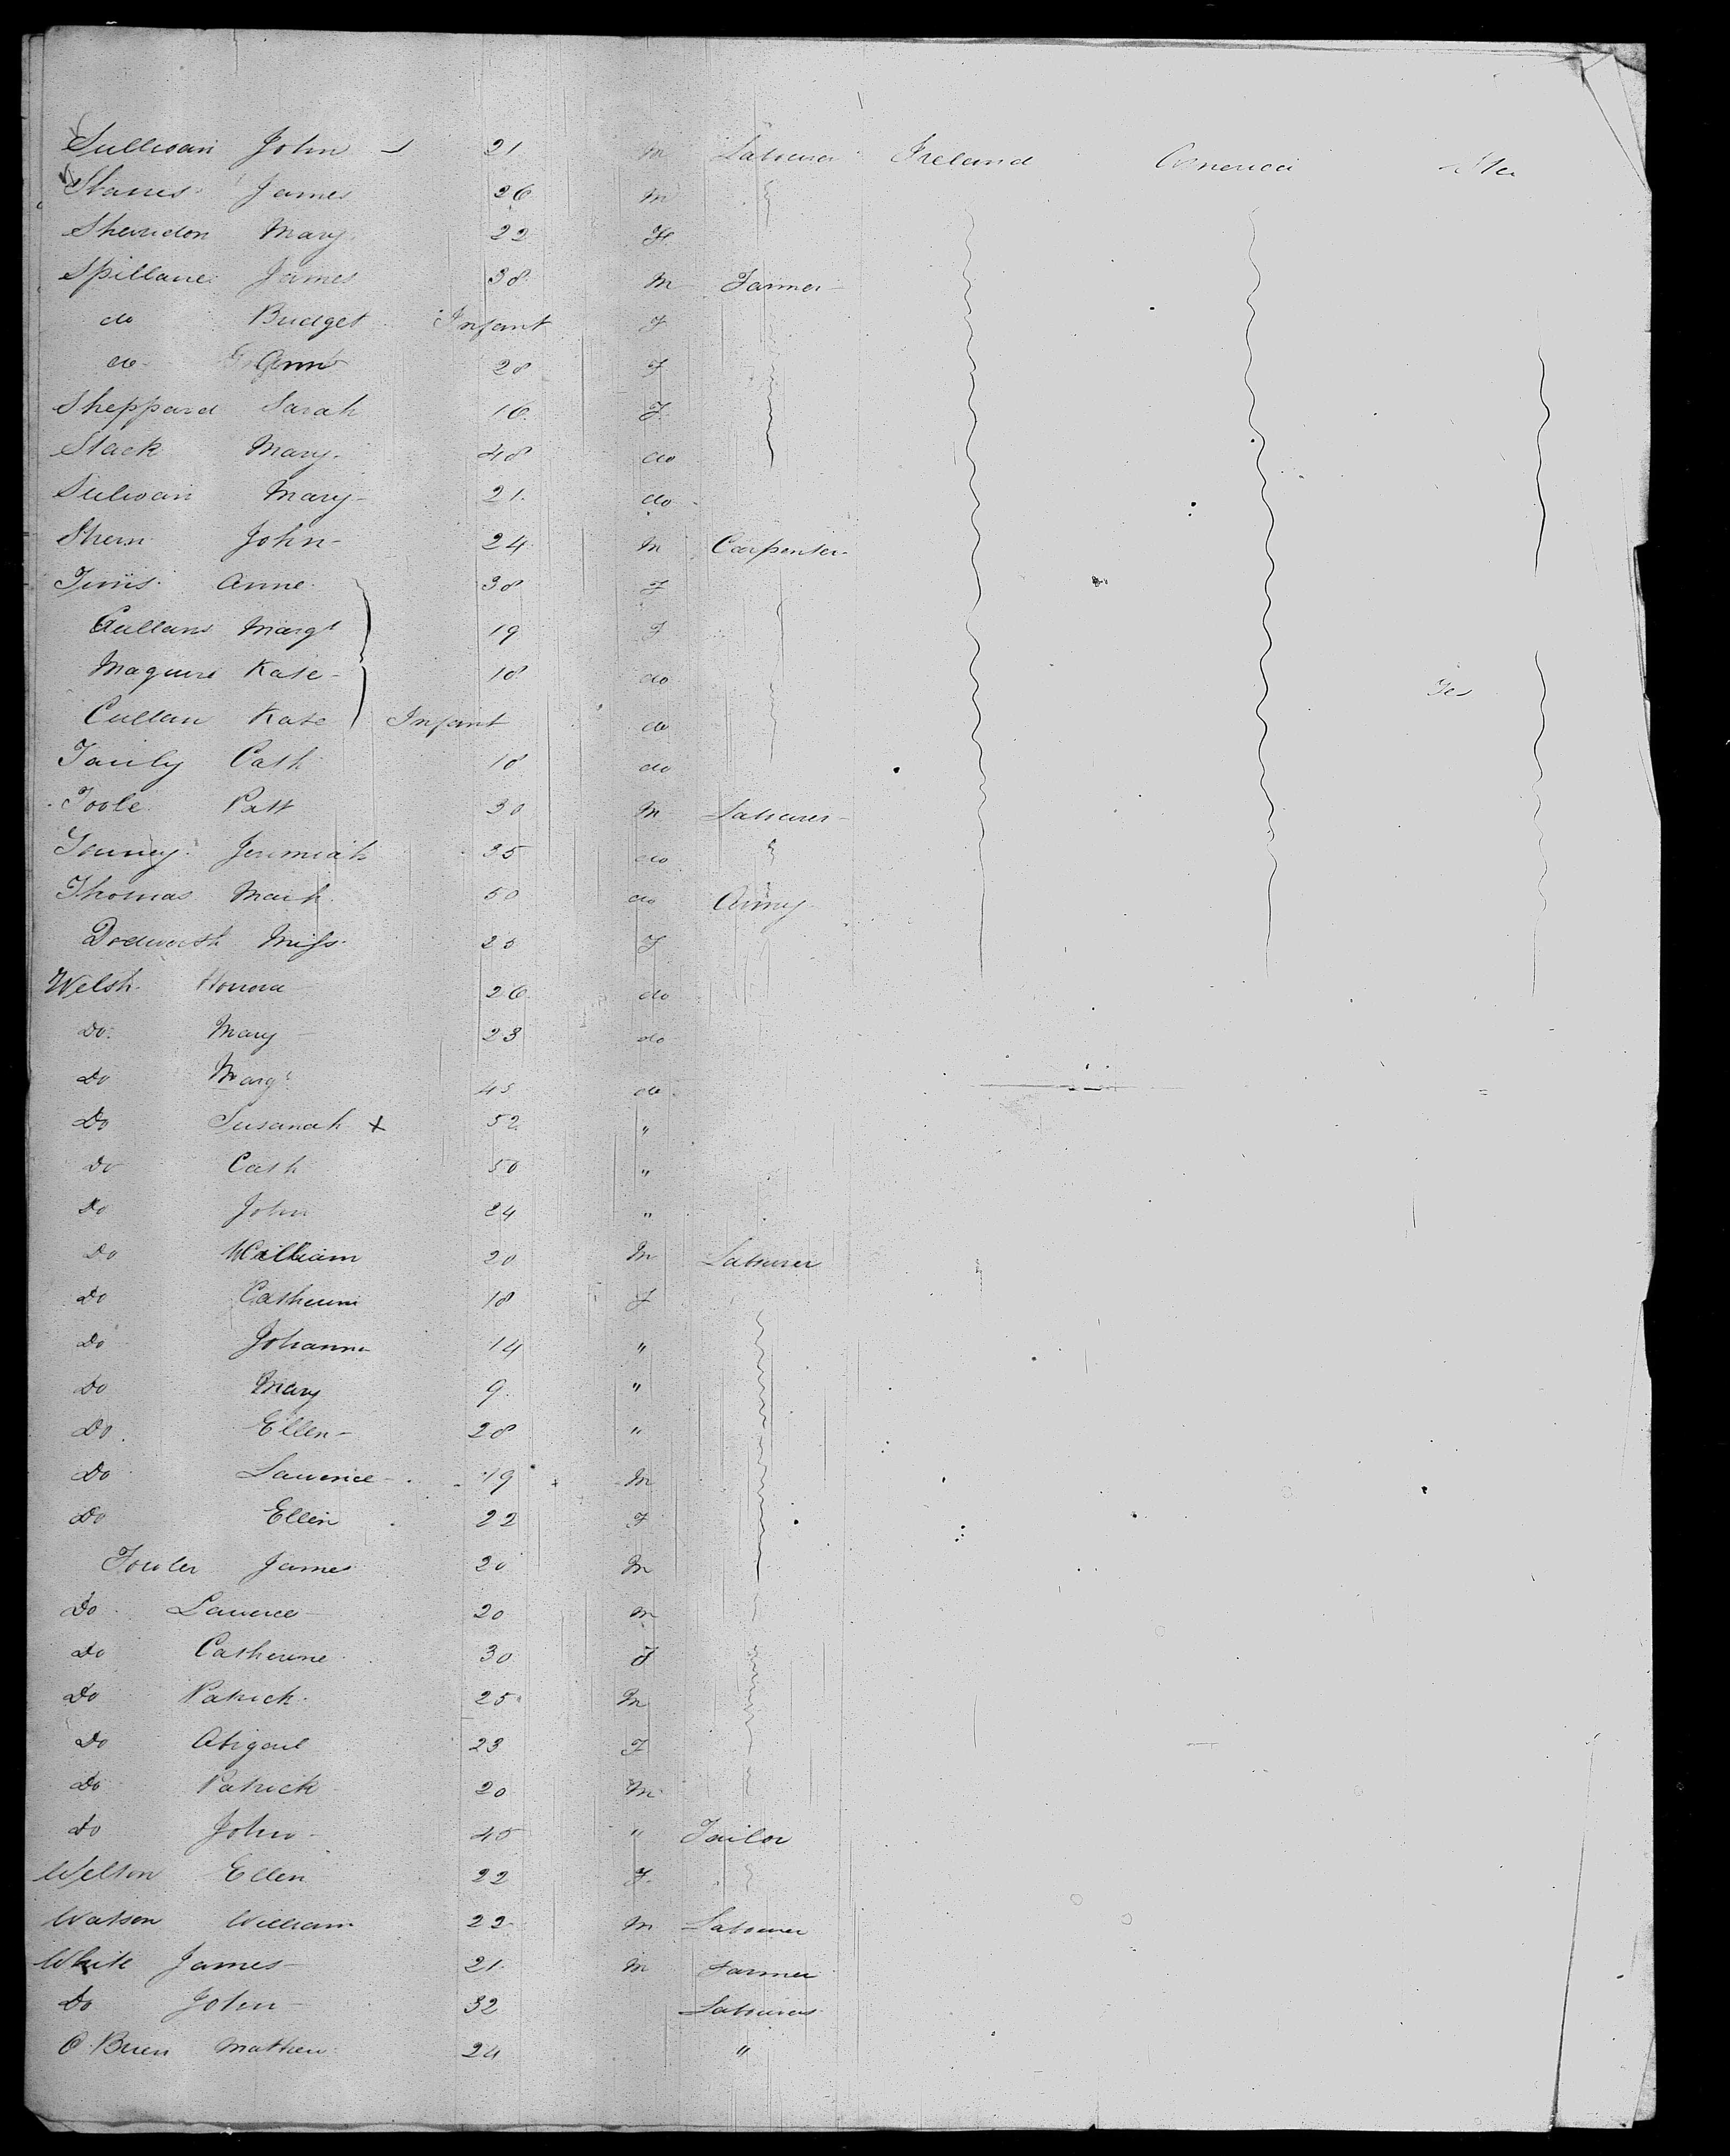 Sullivan John 21 m Labourer Ireland America
James 26 m
Sheridon Mary 22 F
Spillane James 38 m Farmer
do Bridget Infant F
do Ann 28 F
Sheppard Sarah 16 F
Stack Mary 48 do
Sulivan Mary 21 do
John 24 m Carpenter
Anne 38 F
Margt 19 F
Maguire Kate 18 do Yes
Cullan Kate Infant do
Cath 18 do
Toole Patt 30 m Labourer
Jeremiah 35 do
Thomas Mark 50 do Army
Dodworth Miss 25 F
Welsh Honora 26 do
Do Mary 23 do
Do Margt 45 do
Do Susanah x 52 "
Do Cath 50 "
Do John 24 "
Do William 20 m Labourer
Do Catherine 18 F
Do Johanna 14 "
Do Mary 9 "
Do Ellen 28 "
Do Laurence 19 m
Do Ellen 22 F
Fowler James 20 m
Do Laurence 20 m
Do Catherine 30 F
Do Patrick 25 m
Do Abigail 23 F
Do Patrick 20 m
Do John 45 " Tailor
Welton Ellen 22 F
Watson William 22 m Labourer
White James 21 m Farmer
Do John 32 Labourer
O.Brien Mathew 24 "